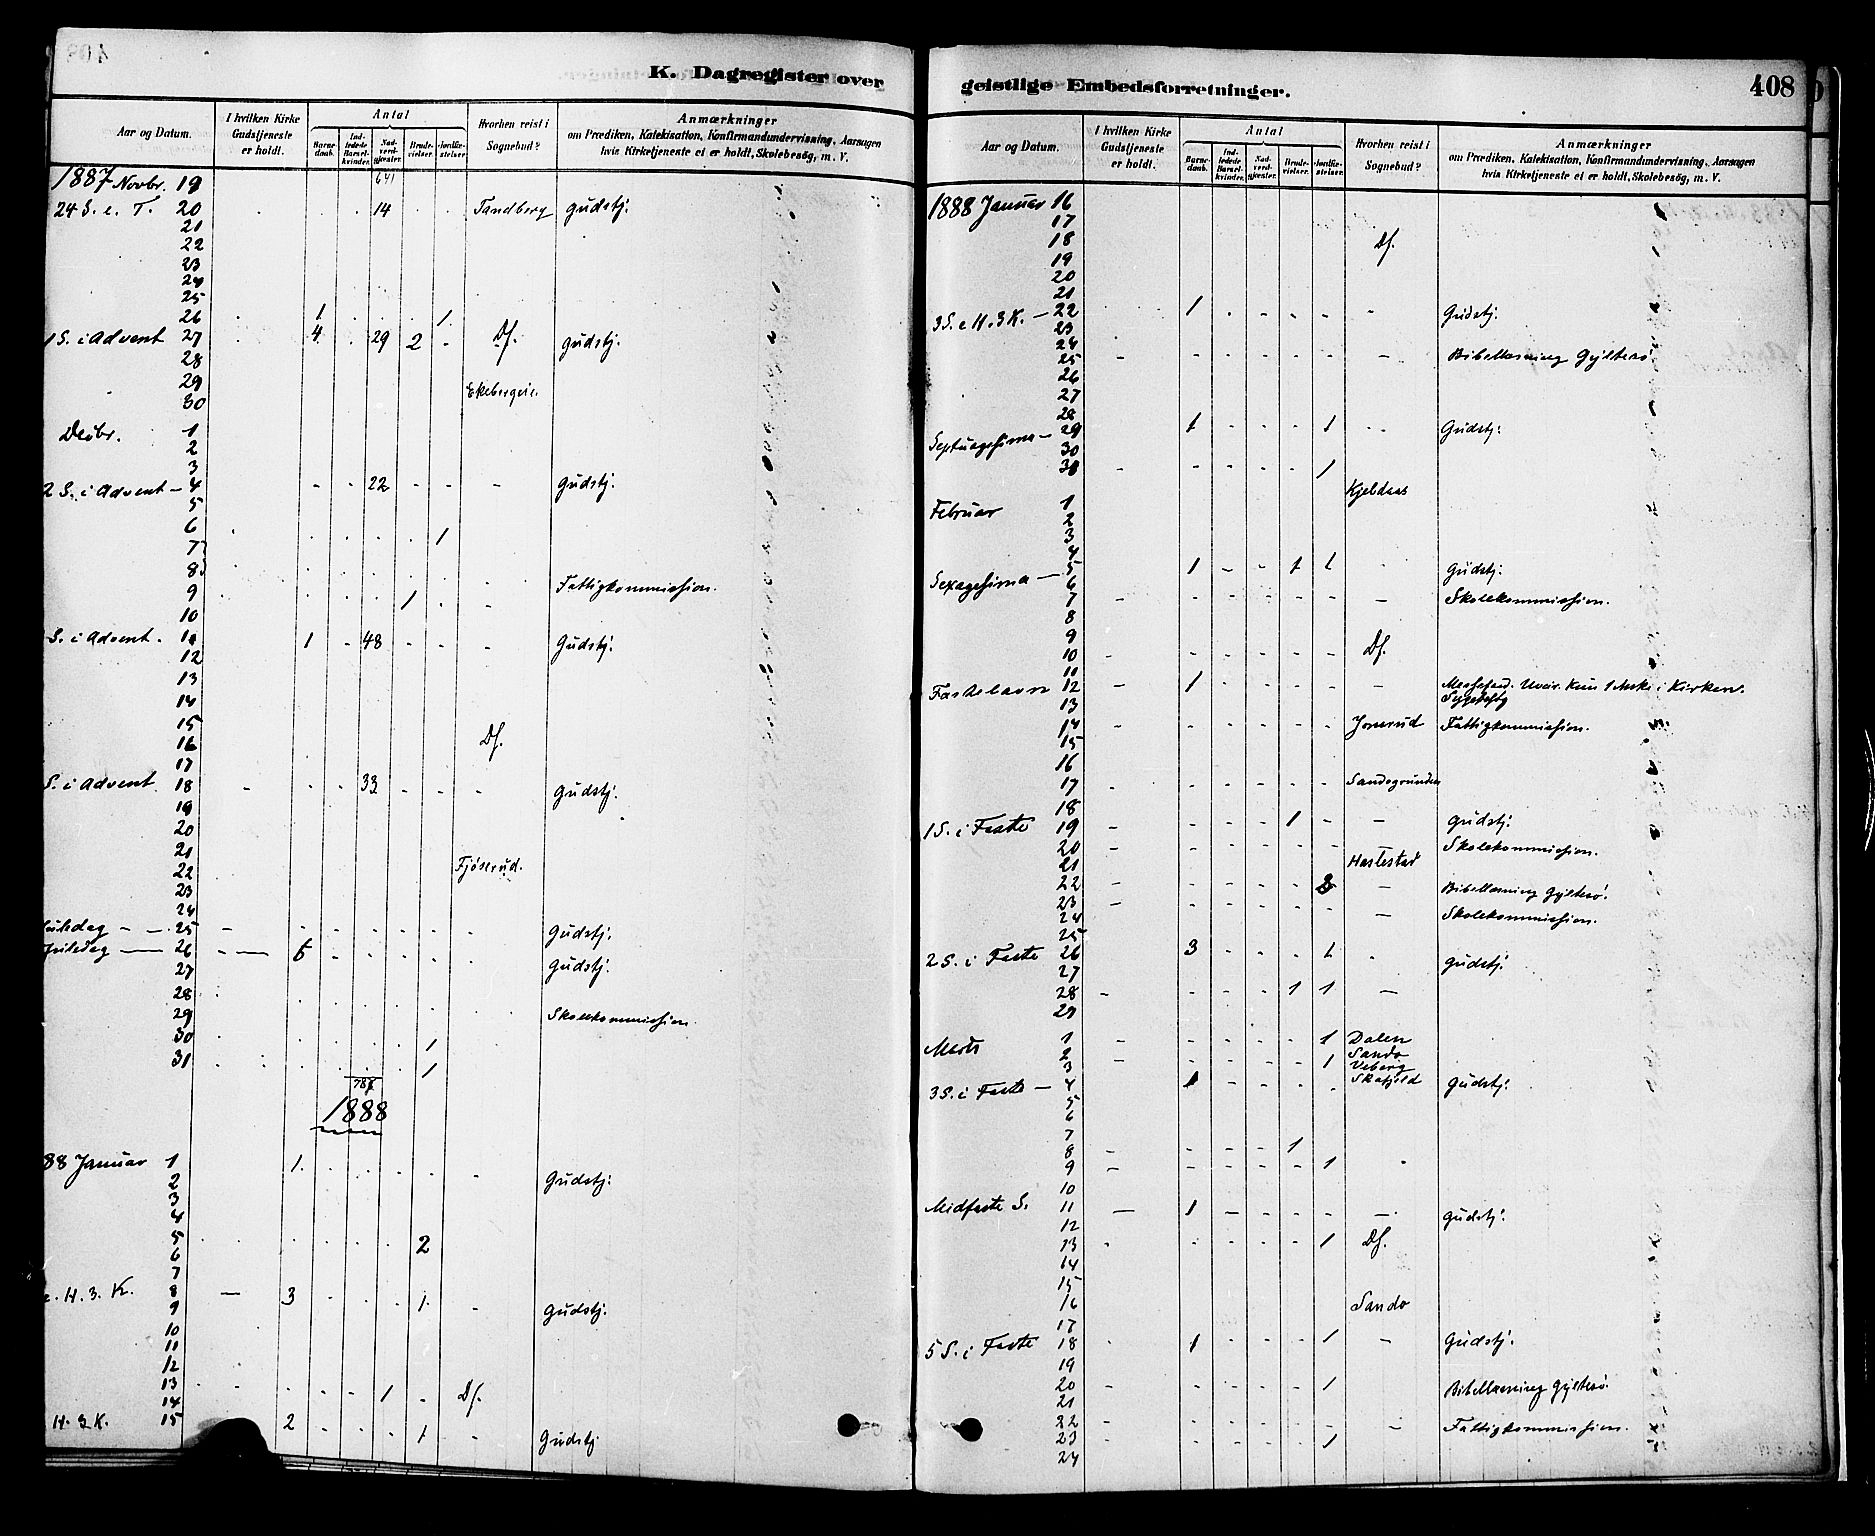 K. Dagregister over
Aar og Datum.
I hvilken Kirke Gudstjeneste er holdt.
Antal
Barnedaab.
Indledede Barselkvinder.
Nadverdgjester.
Brudevielser.
Jordfæstelser
Hvorhen reist i Sognebud?
Anmærkninger
om Prædiken, Katekisation, Konfirmandundervisning, Aarsagen
hvis Kirketjeneste ei er holdt, Skolebesög, m. V.
1887 Novbr. 19 641
24 S. e. T. 20 . . . 14 . . Tandberg gudstj.
21
22
23
24
25
26 . 1 . . . 1.
1 S. i Advent 27 4. . 29 2 . Df. gudstj.
28
29 Ekebergeie.
30
Decbr. 1
2
3
2 S. i Advent - 4 - - 22 - - - gudstj.
5
6 . . . . . 1
7
8 Fattigkommission.
9 . . . . 1 . -
10
S. i Advent. 11 1 - 48 - . - Gudstj.
12
13
14
15 Df.
16
17
S. i Advent 18 - - - 33 - - - gudstj.
19
20
21
22 Fjöserud.
23
24
Juledag - - 25 - - - - - - Gudstj.
Juledag — 26 - — 5 - - - - gudstj.
27
28
29 Skolekommission.
30 . . . . 1
31 . . . . 1
1888
88 Januar 1 1. . . . . - Gudstj.
2
3
4
5 . . . . . 2
6
7
e. H. 3. K. 8 — 3 - - - 1. - gudstj.
9
10
11
12
13 . . - - - 1 - Df.
14
H. 3 K. 15 2 - - - 1 - Gudstj.
geistlige Embedsforretninger.
408
Aar og Datum.
I hvilken Kirke Gudstjeneste er holdt.
Antal
Barnedaab.
Indledede Barselkvinder.
Nadverdgjester.
Brudevielser.
Jordfæstelser.
Hvorhen reist i Sognebud?
Anmærkninger
om Prædiken, Katekisation, Konfirmandundervisning, Aarsagen
hvis Kirketjeneste ei er holdt, Skolebesög, m. V.
1888 Januar 16
17
18 Df.
19
20
21
3 S. e H. 3 K. - 22 1 - - - - - Gudstj.
23
24
25 - - - - - - - Bibellæsning Gyltesø
26
27
28
Septuagesima - 29 1 - - - 1 . Gudstj.
30
31 - - - - - 1
Kjeldaas
Februar 1
2
3
4
Sexagesima — 5 1 - - 1 1 . Gudstj.
6
7 - - - - - - - Skolekommission.
8
9 Df.
10 - - - - - -
11
Fastelavn 12 - 1 - - - - - Messefald. Uveir. Kun 1 Mske i Kirken.
13 Sygebesög
14 - - - - - - Joserud Fattigkommission.
15
16
17 - - - - - - Sandsgrunden
18
1 S. i Faste 19 - - - - 1 - - gudstj.
20 - - - - - - - Skolekommission.
21 Haslestad
22 - - - - - 2 - Bibellæsning Gyltesø.
23 -
24 - Skolekommission.
25
2 S. i Faste 26 3 - - - 1 . gudstj.
27
28 - - - - 1 1 —
29
Marts 1 - - - - - 1 Dalen
2 Sando
3 1 Veberg
3 S. i Faste - 4 1 - - - - Skafjeld gudstj.
5
6
7
8 - - - - 1
9 - - - - - 1 .
10
Midfaste S. 11 — 1 - - - - -. gudstj.
12
13 - - - - - 1 Df.
14
15
16 Sando
17
5 S. i Faste 18 1 - - - 1 - Gudstj.
19
20 - - - - - 1 Bibellæsning Gyltesø.
21
22 - - - - - - - Fattigkommission.
23 - - - - - 1
24